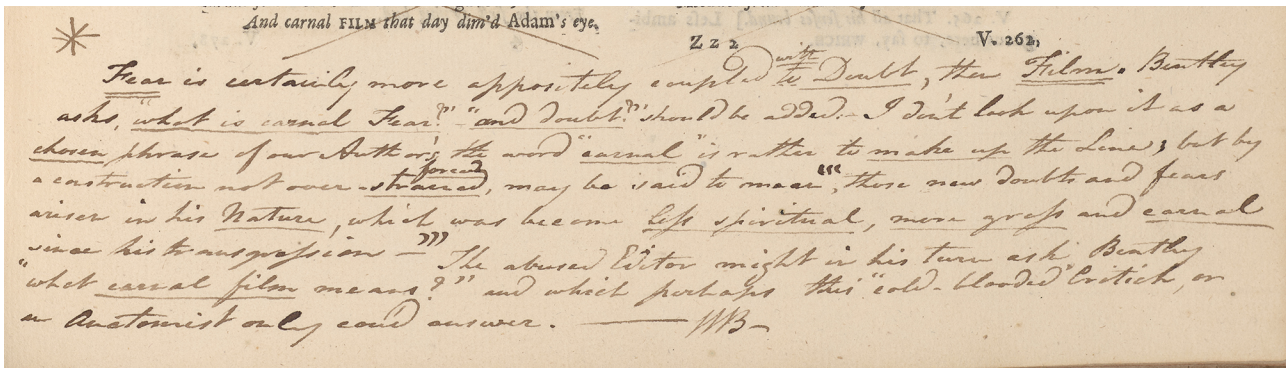 And carnal FILM that day dim'd Adam's eye.
Z z 2
V. 262,
Fear is certainly more appositely coupled with to Doubt, then Film. Bentley
asks, "what is carnal Fear?" "and doubt?" should be added. I don't look upon it as a
chosen phrase of our Author's, the word "carnal" is rather to make up the Line; but by
a construction not over-strained, forced may be said to mean "those new doubts and fears
arisen in his Nature, which was become less spiritual, more gross and carnal
since his transgression —" The abused Editor might in his turn ask Bentley
"what carnal film means?" and which perhaps this "cold-blooded" Critick, or
an Anatomist only cou'd answer. — WB —